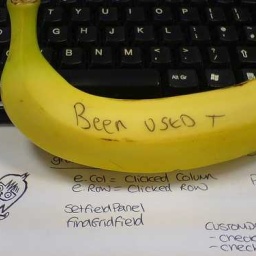 T Y U I O P
G H J K L
B N M
Alt Gr
Been USED T
e.Col = Clicked Column
e.Row = Clicked Row
SetfieldPanel
FindGridfield